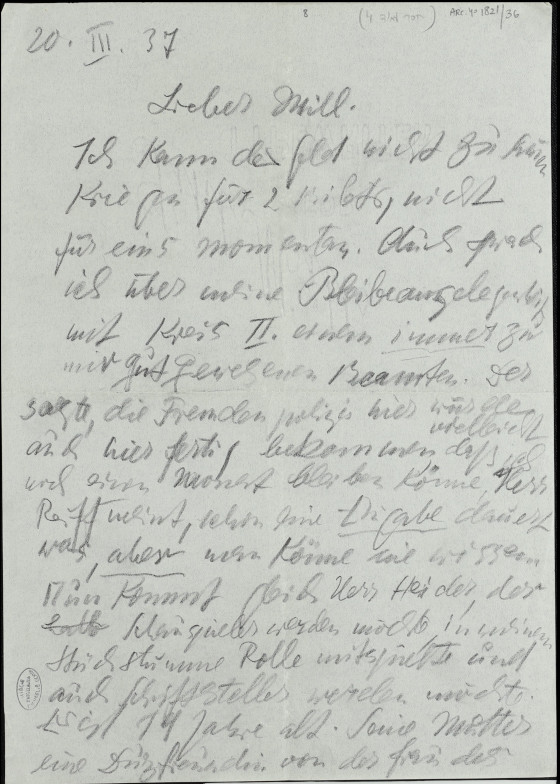 8
ARC. 4° 1821/36
20. III. 37
Lieber Mill.
Ich kann das Geld nicht zu
Kriegen für 2 Billets, nicht
für eins momentan. Auch sprach
ich über meine Bleibeangelegenheit
mit Kreis II. einem immer zu
mir gut gewesenen Beamten. Der
sagte, die Fremdenpolizei hier würde vielleicht
auch hier fertig bekommen daß ich
noch einen Monat bleiben könne, Herr
Reiff meint, schon eine Eingabe dauert
was, aber man könne nie wissen
Nun kommt gleich Herr Heider, der
Schauspieler werden möchte, in meinem
Stück stumme Rolle mitspielte und
auch Schriftsteller werden möchte.
Er ist 19 Jahre alt. Seine Mutter
eine Duzfreundin von der Frau des